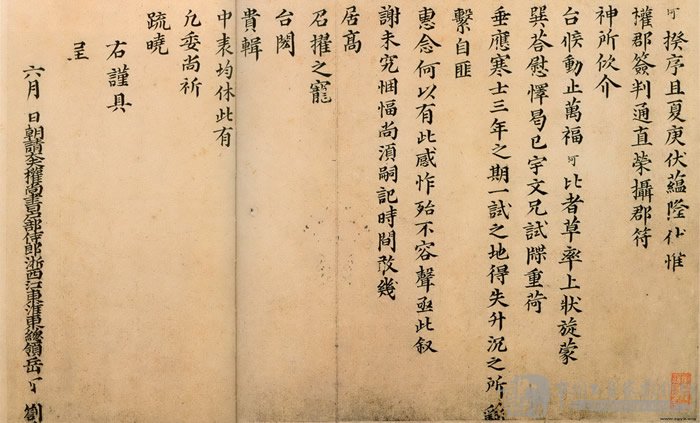 可 揆序且夏庚伏蘊隆伏惟
權郡簽判通直榮攝郡符
神所欣介
台候動止萬福可比者草率上狀旋蒙
巽荅慰懌曷已宇文兄試牒重荷
垂應寒士三年之期一試之地得失升沉之所繇
繫自匪
惠念何以有此感怍殆不容聲亟此叙
謝未究悃愊尚須嗣記時間敢幾
居高
召擢之寵
台閎
貴輯
中表均休此有
凡委尚祈
疏曉
右謹具
呈
六月 日朝請大夫權尚書戶部侍郎浙西江東淮東總領岳 劄